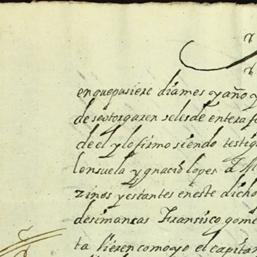 en que pusiere dia mes y año y
de se otorgaren seles de entera fe
de el y lo firmo siendo testig
lonsuela ygnacio lopes
zinos y estantes en este dicho
de simancas Fransisco gome
ta bieren como yo el capitan